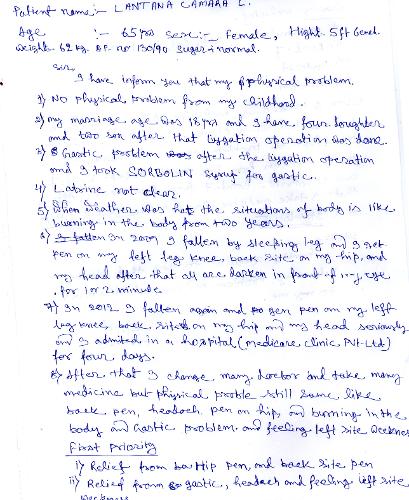 Patient name:- LANTANA CAMARA L.
Age :- 65 yrs Sex:- Female, Hight. 5ft 6inch.
weight. 62 kg. B.P. no 130/90 Suger-normal.
Sir,
I have inform you that my physical problem.
1) NO physical problem from my childhood.
2) my marriage age was 18 yrs and I have four doughter
and two son after that lygation operation was done.
3) Gastic problem after the lygation operation
and I took SORBOLIN Syrup for gastic.
4) Latrine not clear.
5) When weather was hot the situations of body is like
burning in the body from two years.
6) In 2009 I fallen by sleeping leg and I get
pen on my left leg knee, back site on my hip, and
my head after that all are darken in front of my eye
for 1 or 2 minute
7) In 2012 I fallen again and gen pen on my left
leg knee, back site on my hip and my head seriously
and I admited in a hospital (medicare clinic Pvt-Ltd)
for four days.
8) After that I change many doctor and take many
medicine but physical proble still same like
back pen, headech pen on hip, and burning in the
body and Gastic problem. and feeling left site weeknes
First Priority
i) Relief from Hip pen, and back site pen
ii) Relief from gastic, headech and feeling left site
weekness